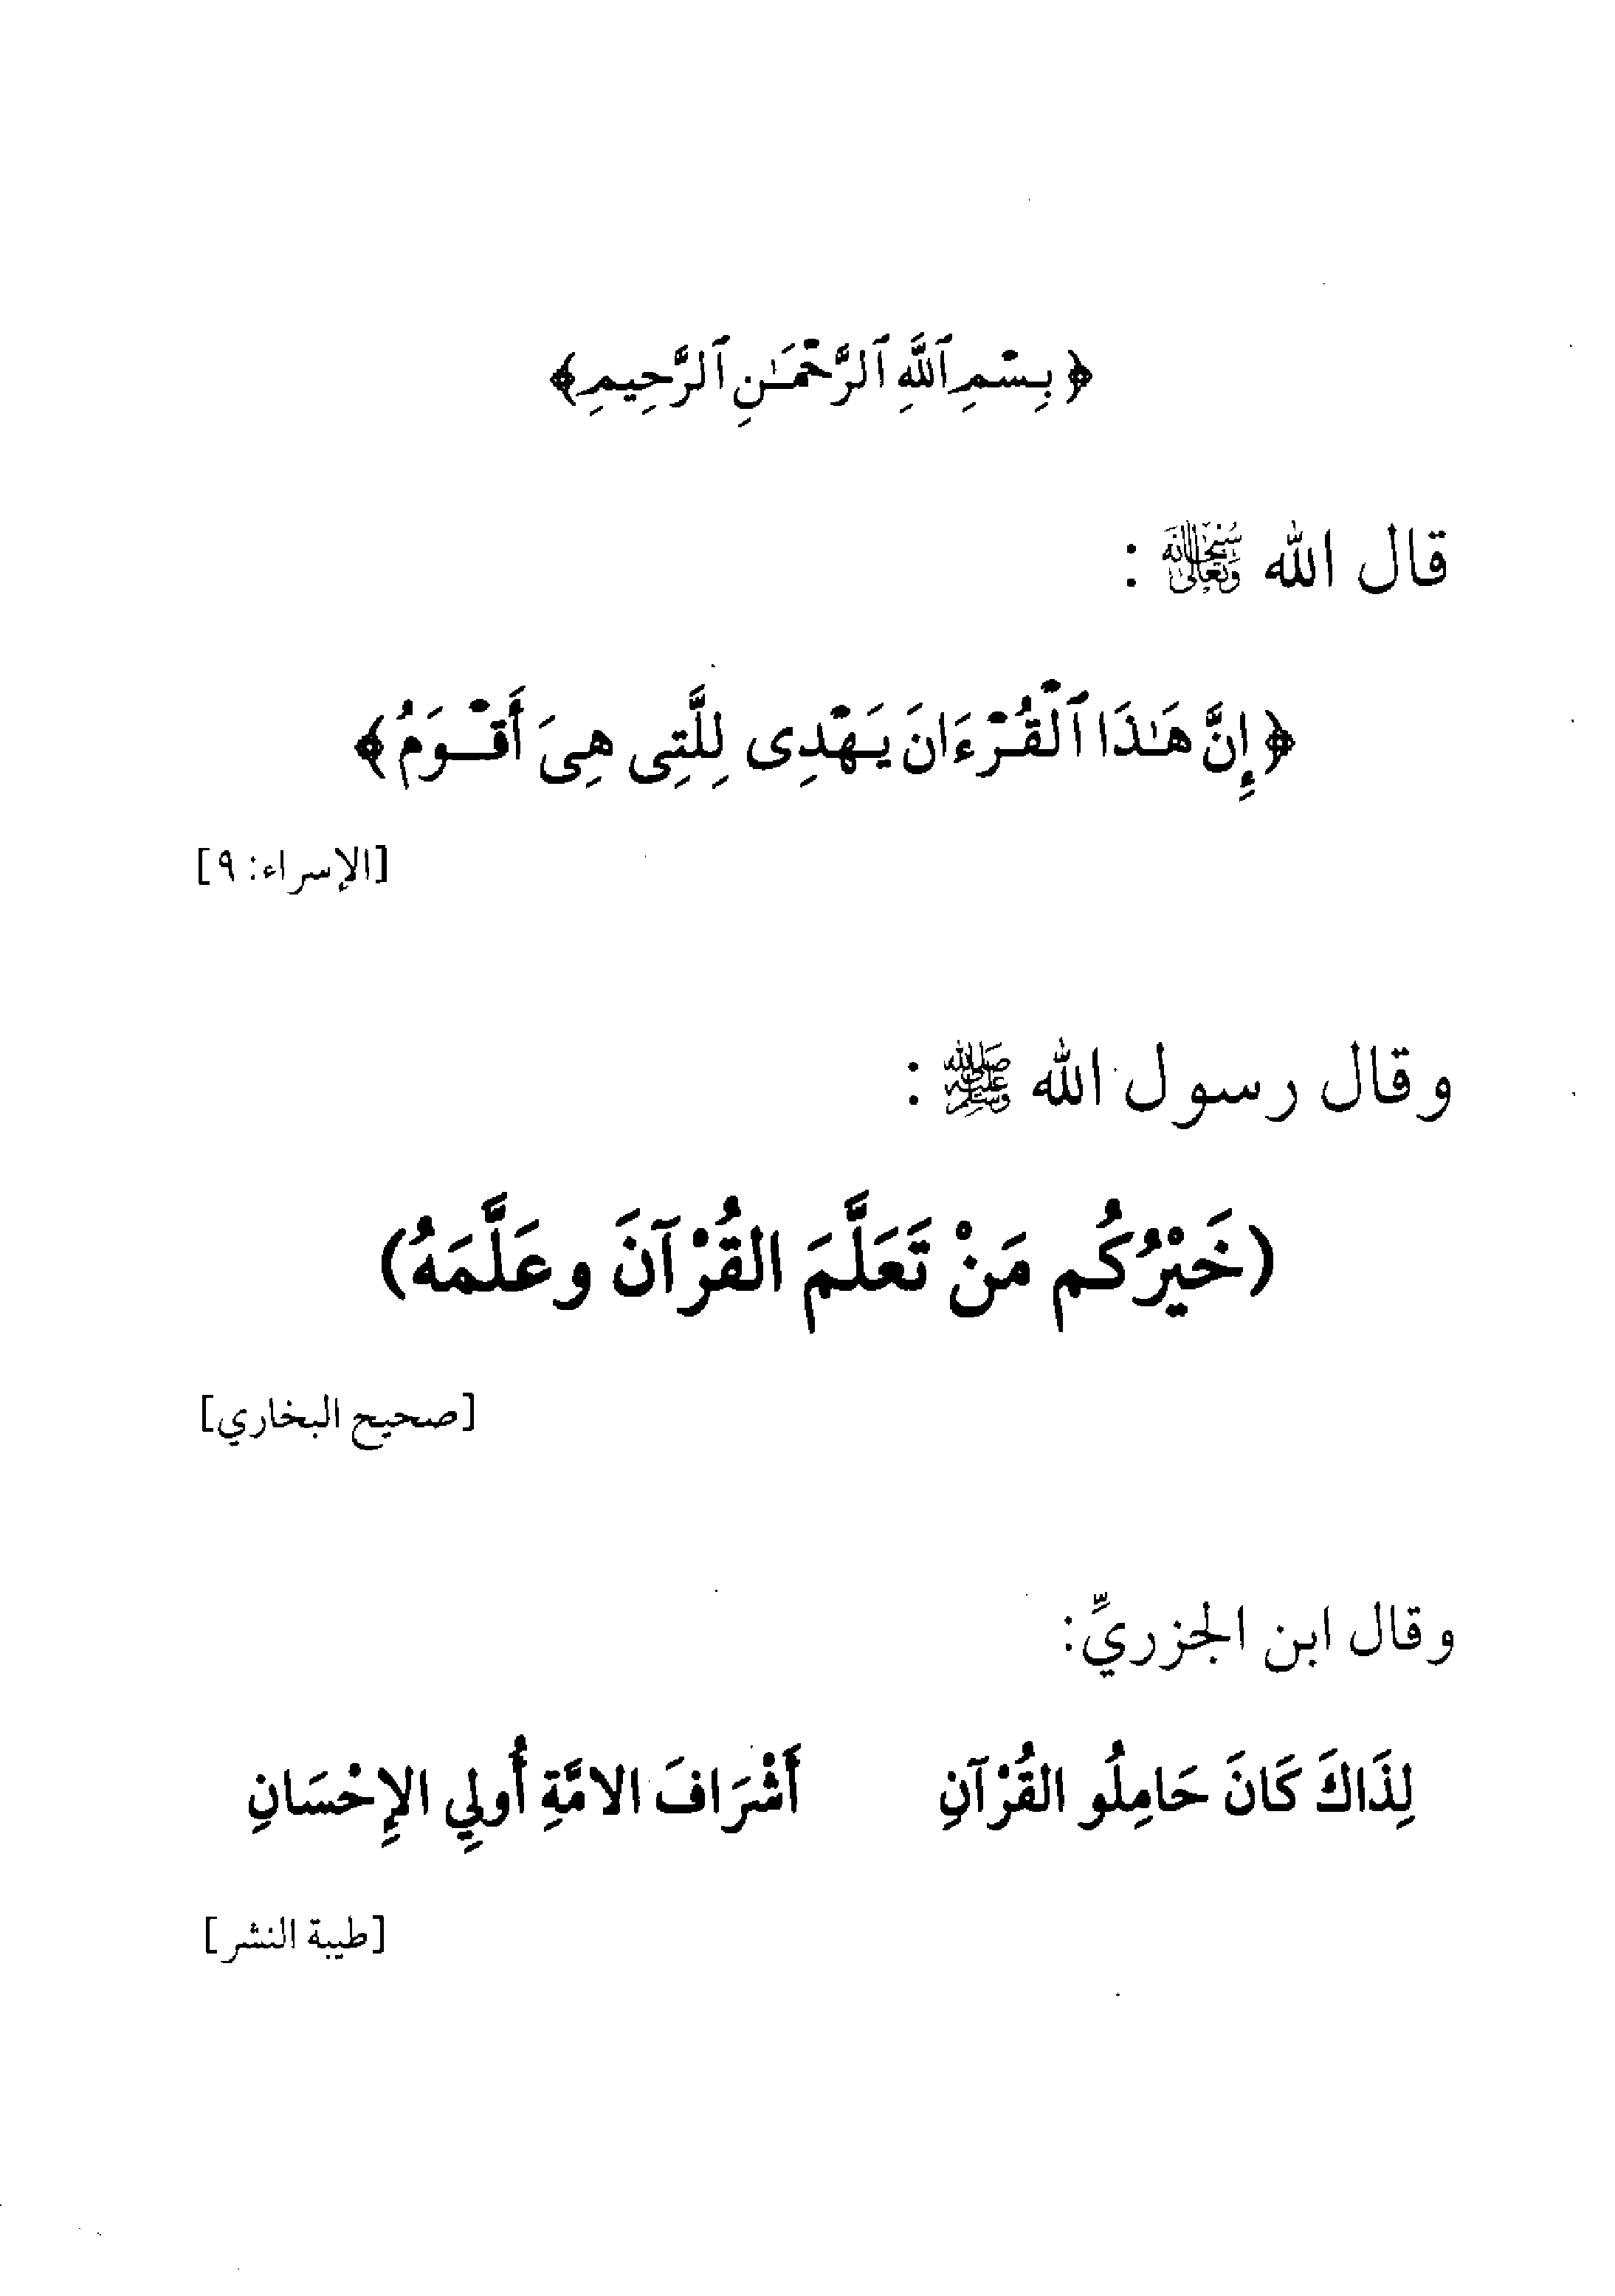 ﴿بِسْمِ ٱللَّهِ ٱلرَّحْمَـٰنِ ٱلرَّحِيمِ﴾
قال الله سُبْحَانَهُ وَتَعَالَى :
﴿إِنَّ هَـٰذَا ٱلْقُرْءَانَ يَهْدِى لِلَّتِى هِىَ أَقْوَمُ﴾
[الإسراء: ٩]
وقال رسول الله ﷺ :
(خَيْرُكُم مَنْ تَعَلَّمَ القُرْآنَ وعَلَّمَهُ)
[صحيح البخاري]
وقال ابن الجزريِّ:
لِذَاكَ كَانَ حَامِلُو القُرْآنِ أَشْرَافَ الامَّةِ أُولِي الإِحْسَانِ
[طيبة النشر]